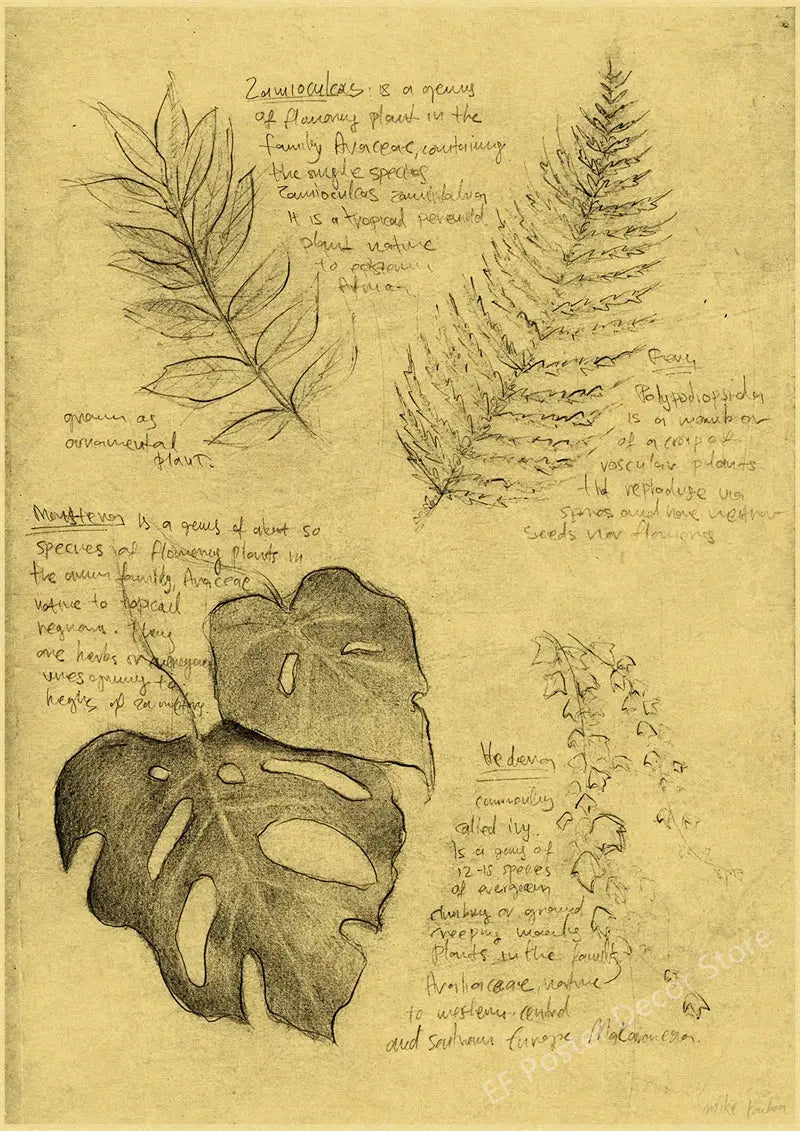 Zamioculcas: is a genus
of flowering plant in the
family Araceae, containing
the single species
Zamioculcas
It is a tropical perennial
plant native
to eastern
grown as
ornamental
plant.
Fern
Polypodiopsida
is a member
of a group of
vascular plants
that reproduce via
spores and have neither
seeds nor flowers
Monstera is a genus of about 50
species of flowering plants in
the arum family, Araceae
native to tropical
regions. They
are herbs or evergreen
vines growing to
heights of
Hedera
commonly
called ivy.
Is a genus of
12-15 species
of evergreen
climbing or ground
creeping woody
plants in the family
Araliaceae, native
to western, central
and southern Europe, Macaronesia.
EF Poster Decor Store
mike